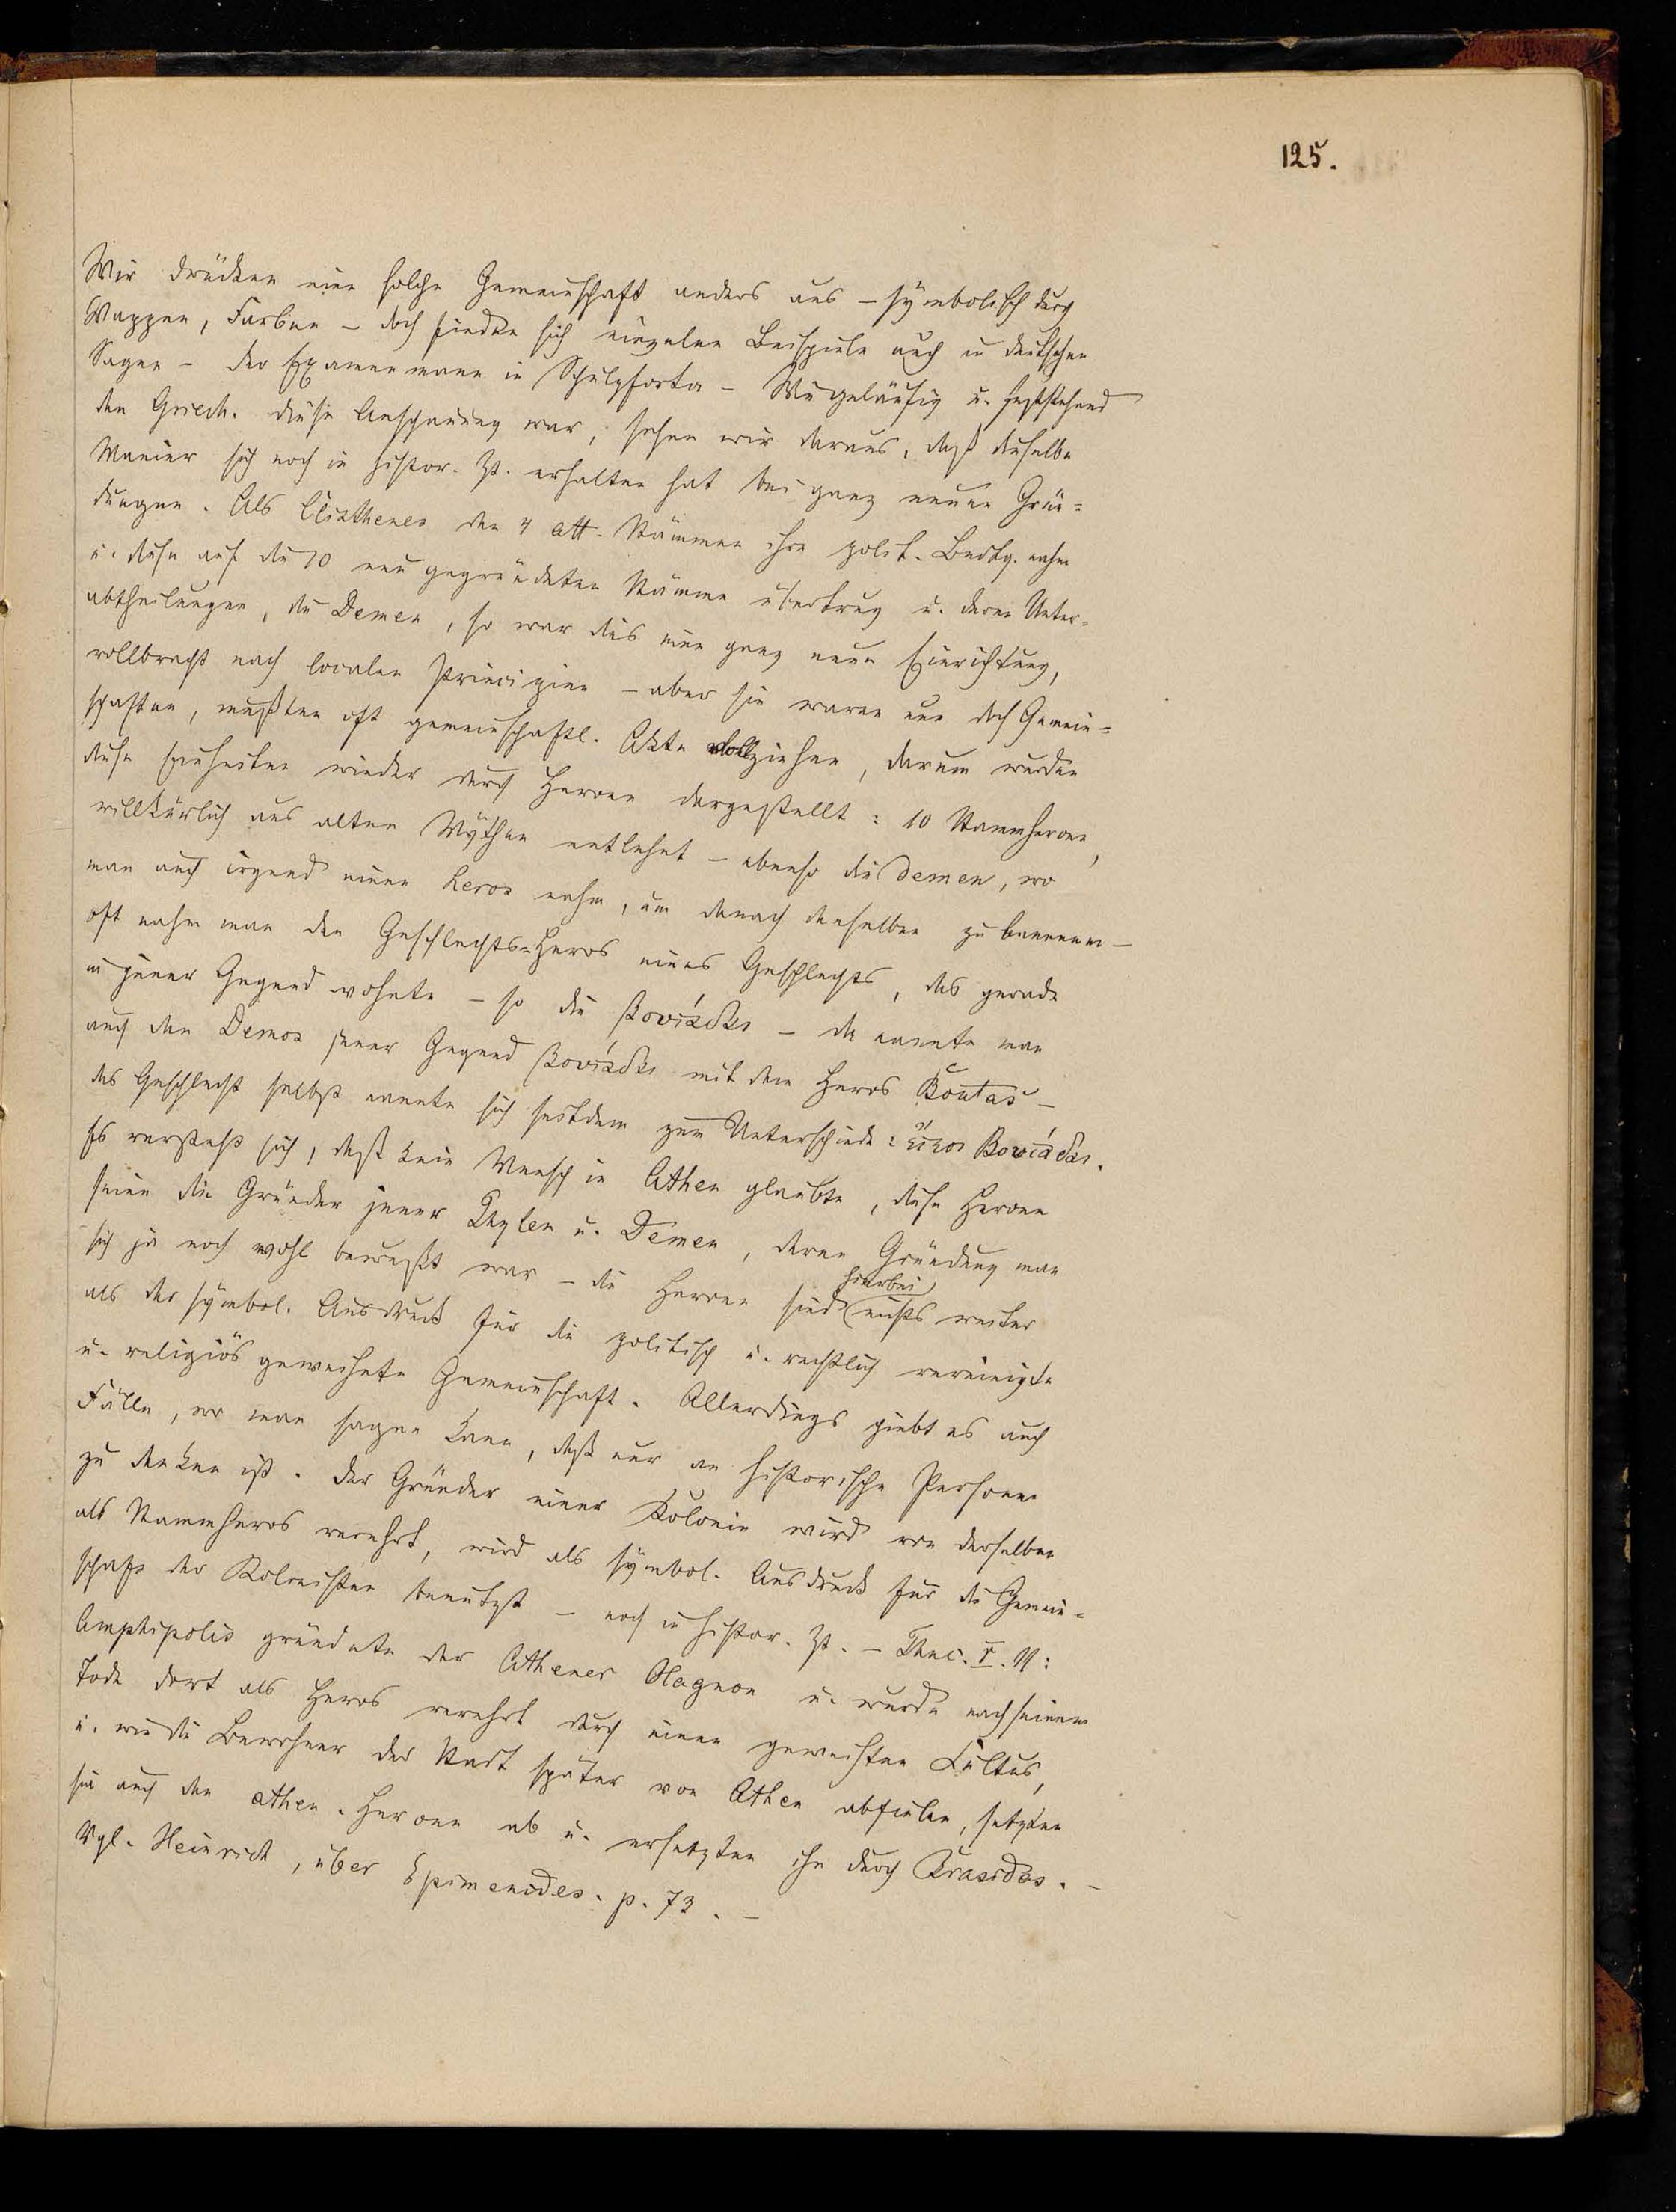 125.
Wir drücken eine solche Gemeinschaft anders aus – symbolisch durch
Wappen, Farben – doch finden sich einzelne Beispiele auch in deutschen
Sagen – der Examenmann in Schulpforta – Wie geläufig u. feststehend
den Griech. diese Anschauung war, sehen wir daraus, daß dieselbe
Manier sich noch in histor. Zt. erhalten hat bei ganz neuen Grün=
dungen. Als Clisthenes den 4 att. Stämmen ihre polit. Bedtg. nahm
u. diese auf die 10 neu gegründeten Stämme übertrug u. deren Unter=
abtheilungen, die Demen, so war dies eine ganz neue Einrichtung,
vollbracht nach localen Principien – aber sie waren nun doch Gemein=
schaften, mußten oft gemeinschaftl. Akte vollziehen, darum wurden
diese Einheiten wieder durch Heroen dargestellt: 10 Stammheroen,
willkürlich aus alten Mythen entlehnt – ebenso die Demen, wo
man auch irgend einen Heros nahm, um danach denselben zu benennen –
oft nahm man den Geschlechts=Heros eines Geschlechts, das gerade
in jener Gegend wohnte – so die Βουτάδαι – da nannte man
auch den Demos jener Gegend Βουτάδαι mit dem Heros Boutas –
das Geschlecht selbst nannte sich seitdem zum Unterschiede: Βουτάδαι.
Es versteht sich, daß kein Mensch in Athen glaubte, diese Heroen
seien die Gründer jener Phylen u. Demen, deren Gründung man
sich ja noch wohl bewußt war – die Heroen sind hierbei nichts weiter
als der symbol. Ausdruck für die politisch u. rechtlich vereinigte
u. religiös geweihete Gemeinschaft. Allerdings giebt es auch
Fälle, wo man sagen kann, daß nur an historische Personen
zu denken ist. Der Gründer einer Kolonie wird von derselben
als Stammheros verehrt, wird als symbol. Ausdruck für die Gemein=
schaft der Kolonisten benutzt – noch in histor. Zt. – Thuc. V. 11:
Amphipolis gründete der Athener Hagnon u. wurde nach seinem
Tode dort als Heros verehrt durch einen geweihten Cultus,
u. wie die Bewohner der Stadt später von Athen abfielen, setzten
sie auch den athen. Heroen ab u. ersetzten ihn durch Brasidas. –
Vgl. Heinrich, über Epimenides. p. 73. –